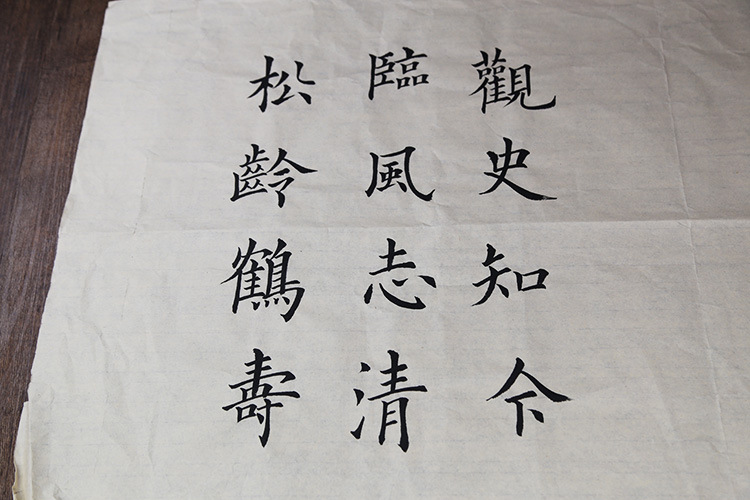 觀史知今
臨風志清
松齡鶴壽